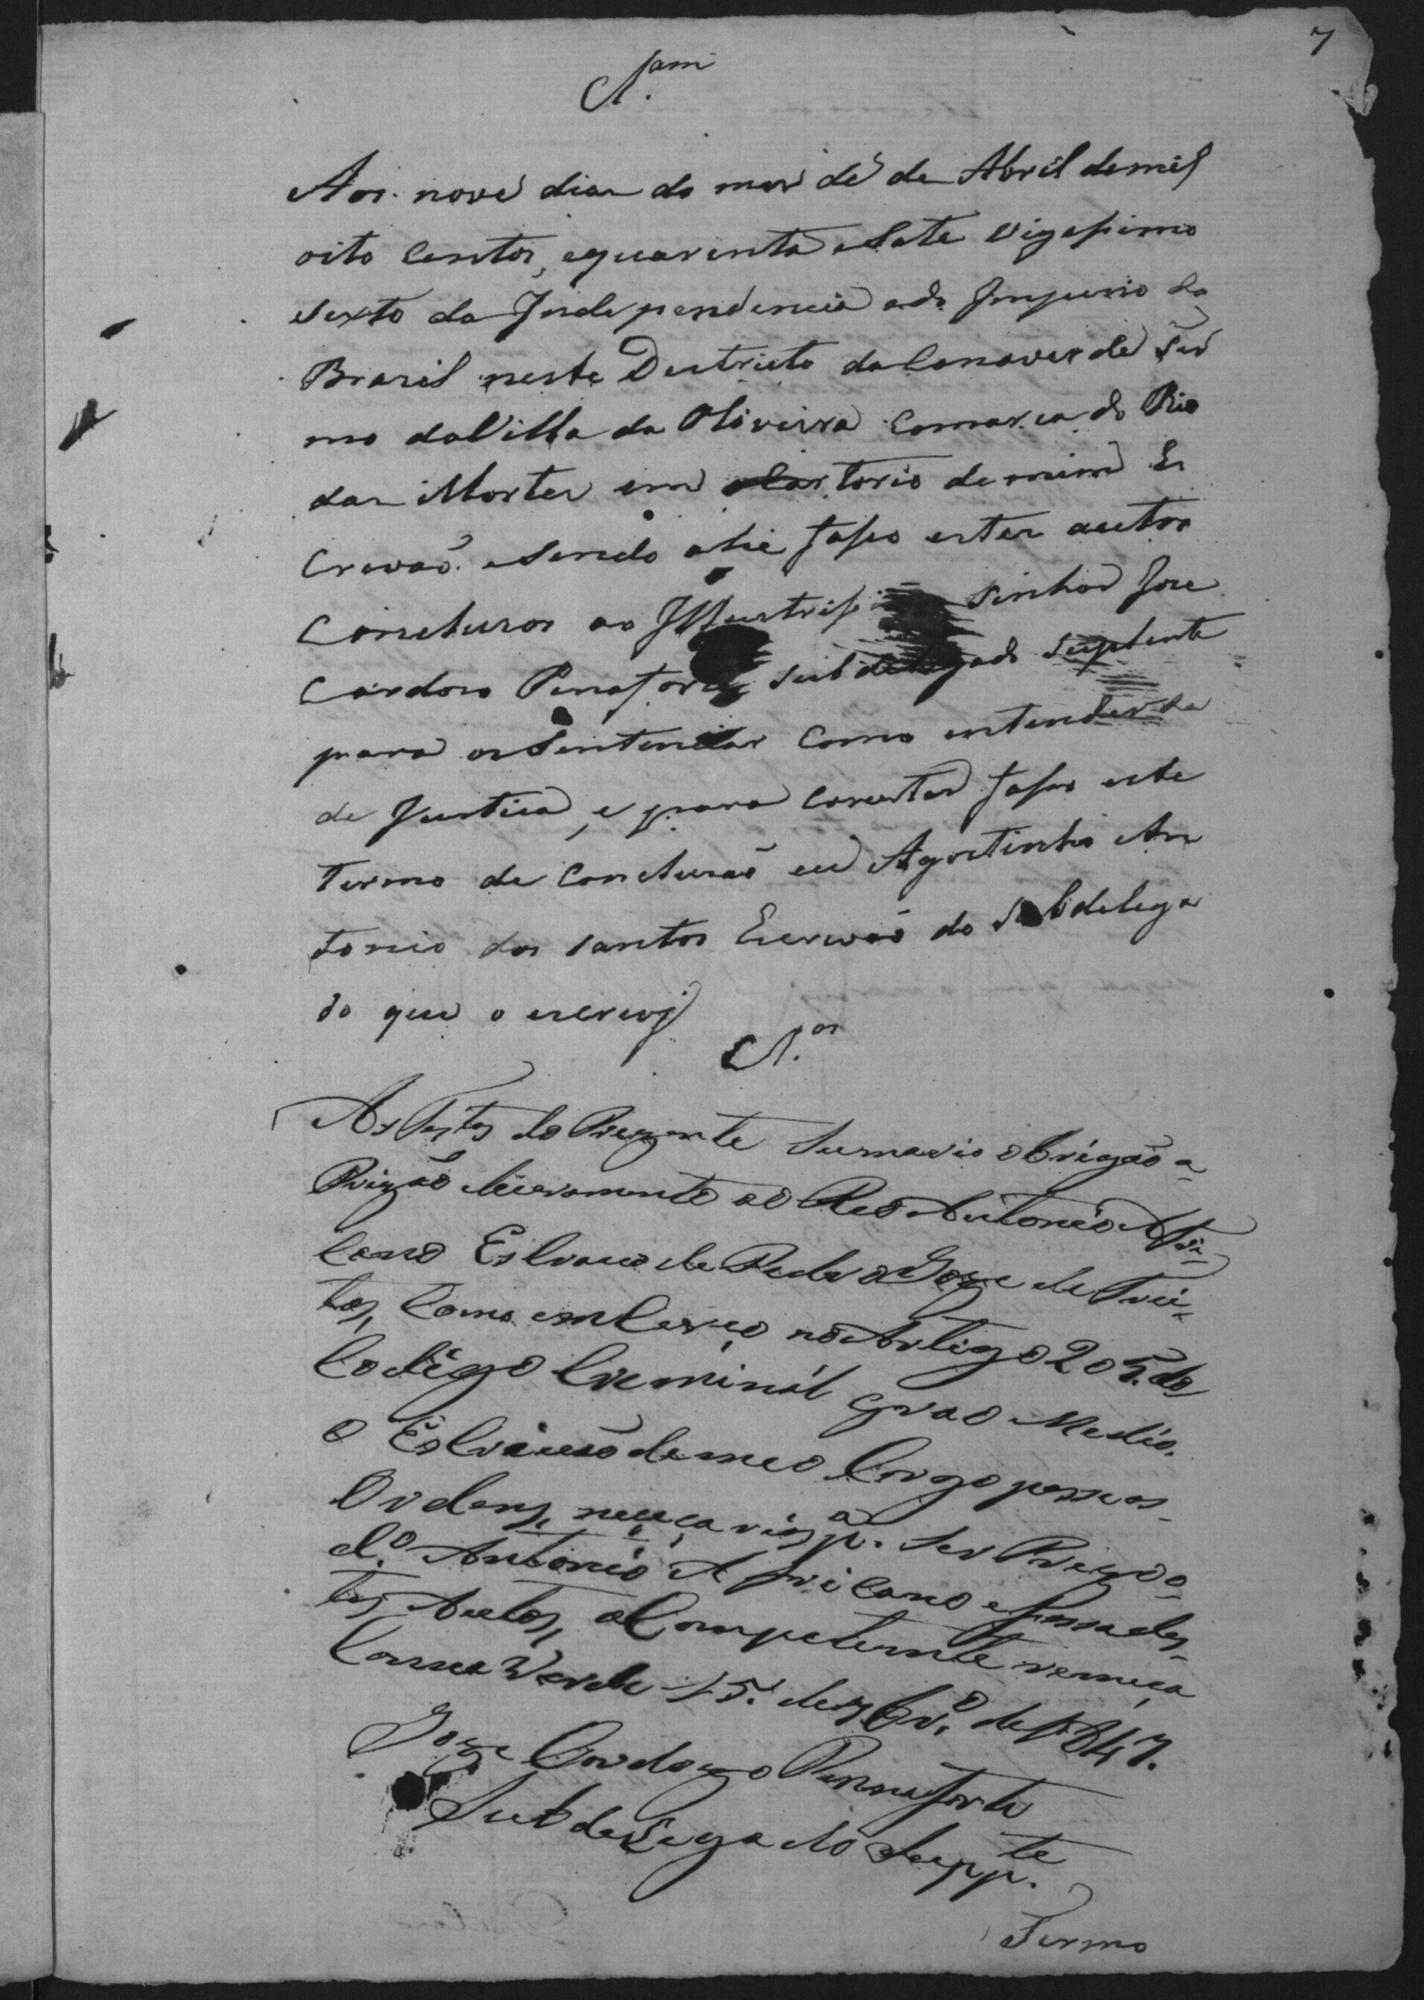 7
Cl.am
Aos nove dias do mes de de Abril de mil
oito Centos, e quarenta e Sete Vigessimo
sexto da Independencia e do Imperio do
Brasil neste Destricto da Canaverde Ter
mo da Villa da Oliveira Comarca do Rio
das Mortes em Cartorio de mim Es
crevaõ e sendo ahi faço estes autos
Concluzos ao Illustrissimo Senhor Jose
Cardozo Penaforte subdelegado suplente
para os Sentenciar como entender de
de Justiça, e para constar faço este
termo de Concluzaõ eu Agostinho An
tonio dos Santos Escrivaõ do Subdelega
do que o escrevj
Cl.os
As Testas do Prezente Sumario obrigaõ a
Prizaõ e Livramento ao Reo Antonio Afri-
cano Escravo de Pedro Joze de Frei-
tas, como emcurço no Artigo 205. do
Codigo Creminal grao Medio.
o Escrivaõ de meo Cargo passe as
Ordens, neceçarias p.a Ser Prezo o
d.o Antonio Africano e faça des-
tes Autos, a Competente remeça
Canna Verde 15. de 7br.o de 1847.
Joze Cardozo Pennaforte
Subdelegado Supp.te
Termo